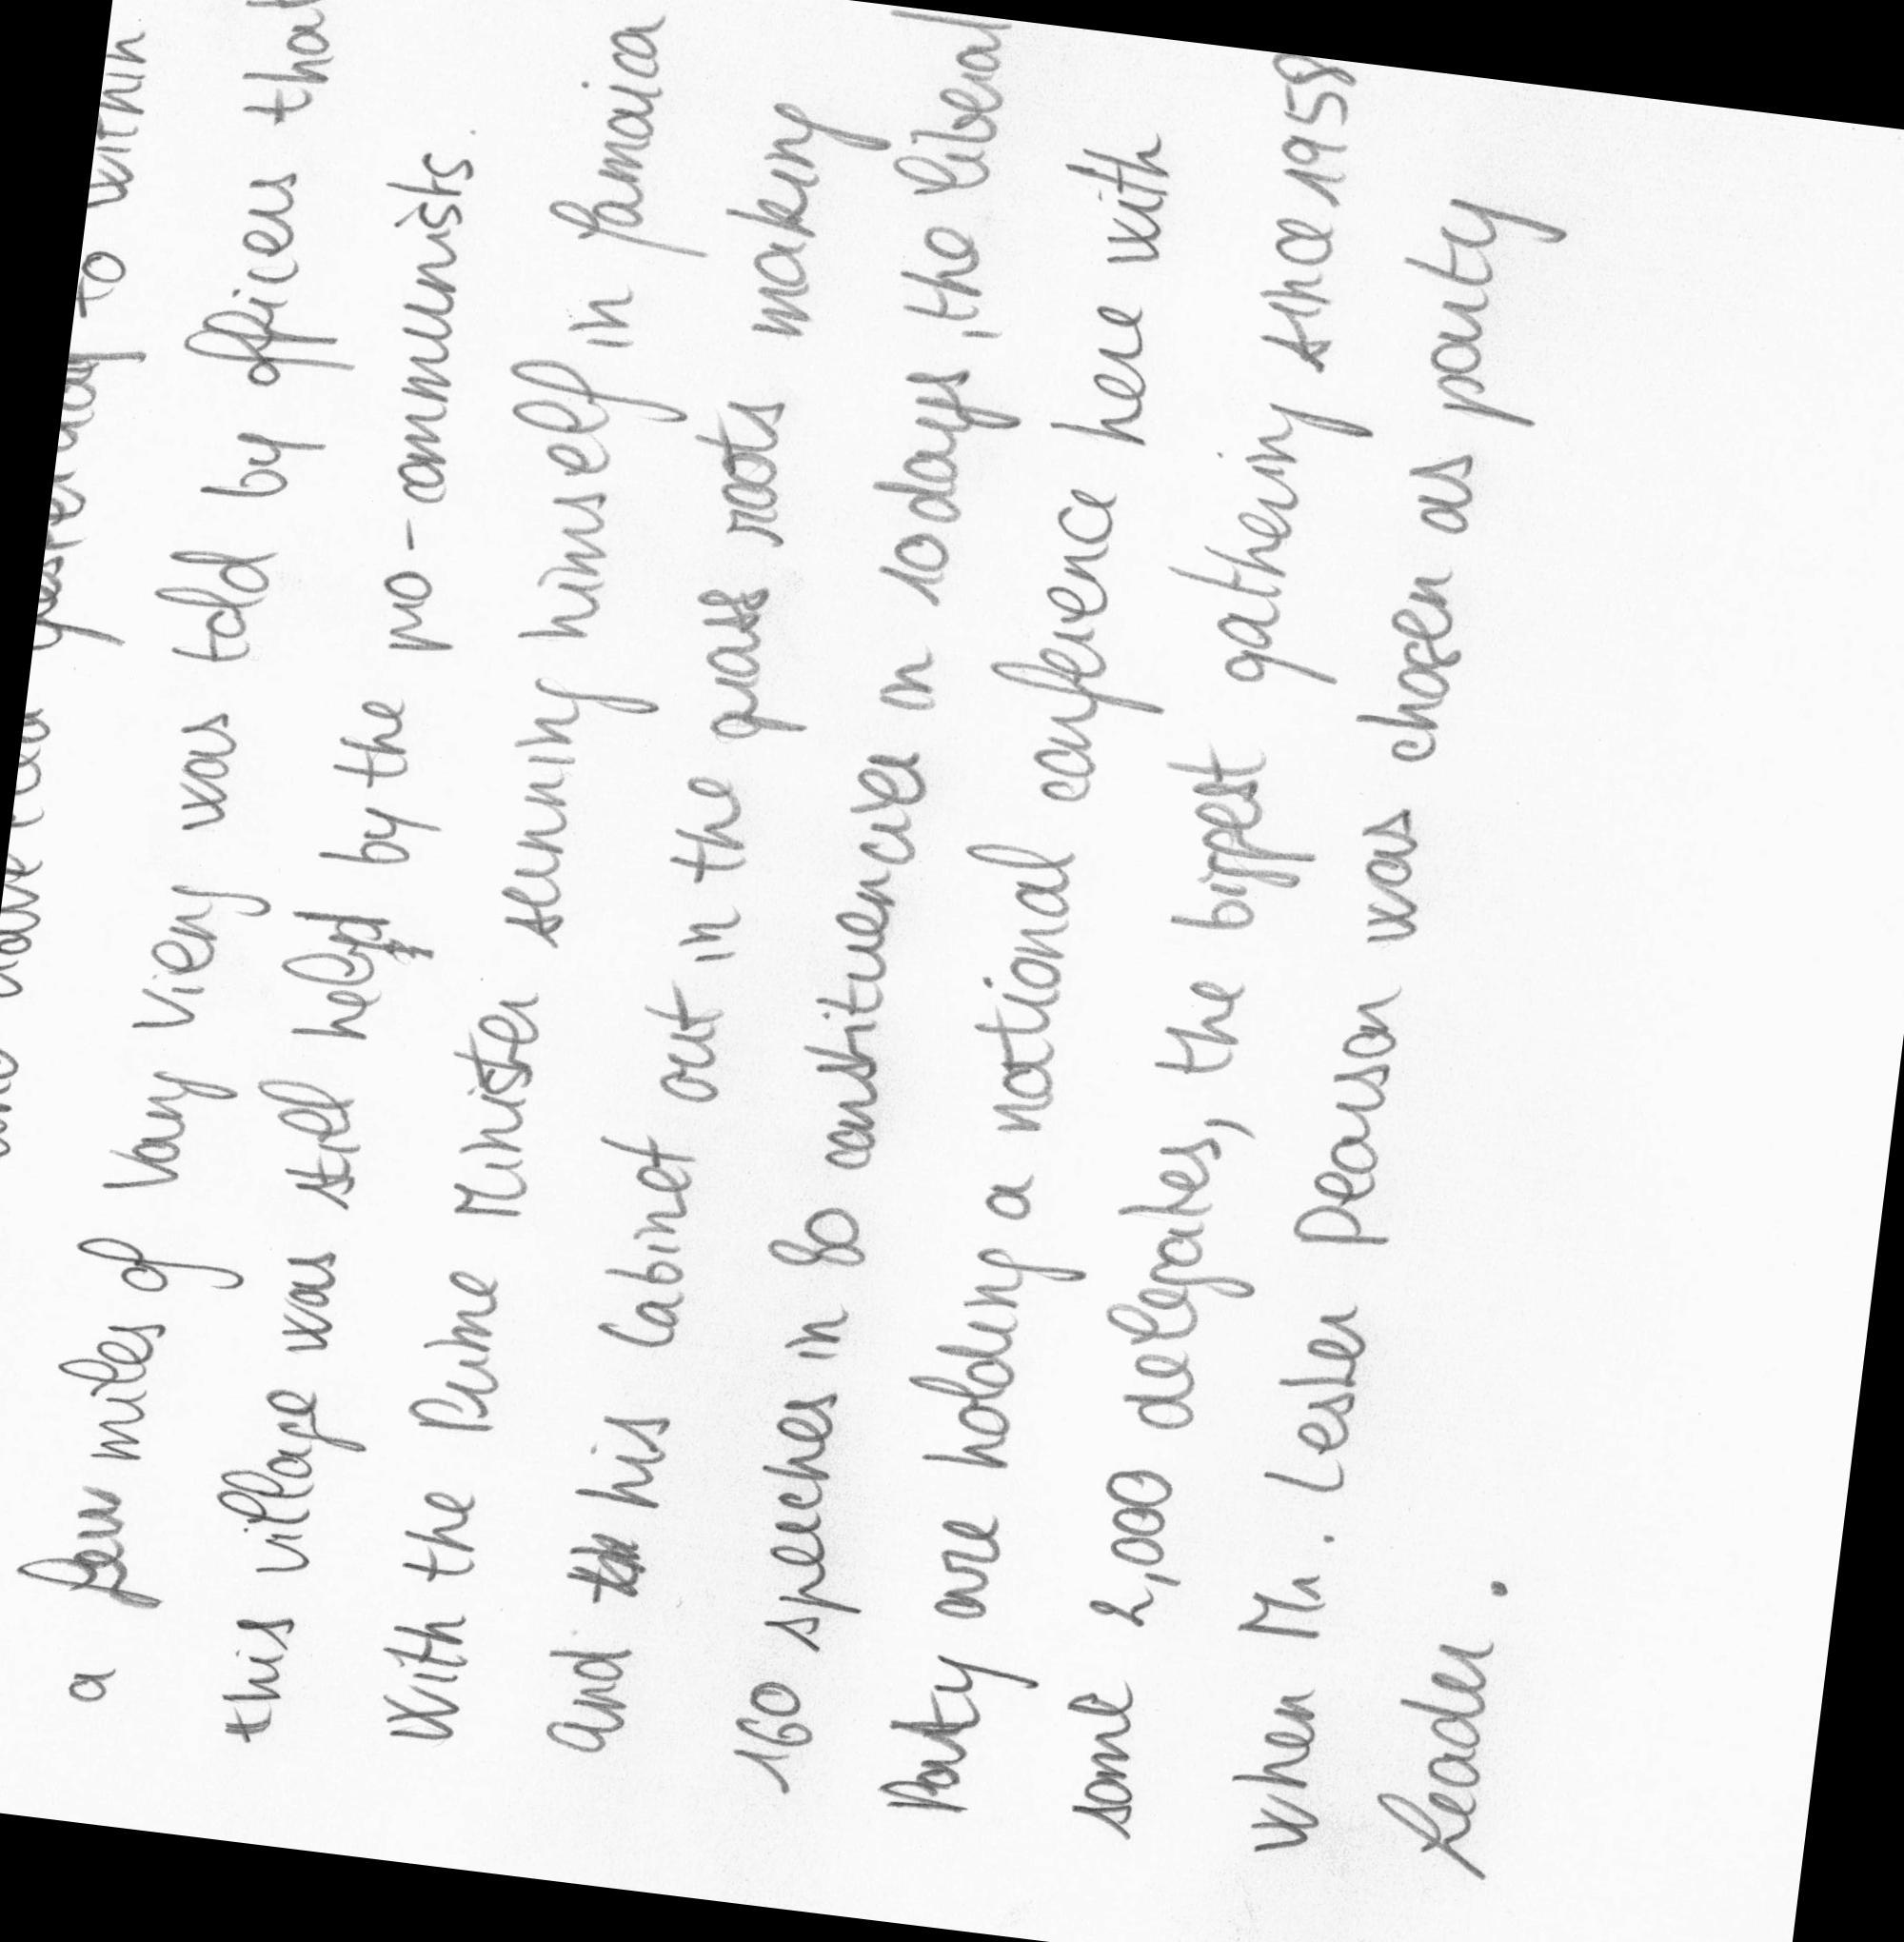 yesterday to within
a few miles of Vang Vieng was told by officers that
this village was still held by the pro-communists.
With the Prime Minister sunning himself in Jamaica
and his Cabinet out in the grass roots making
160 speeches in 80 constituencies on 10 days, the Liberal
Party are holding a national conference here with
some 2,000 delegates, the biggest gathering since 1958
when Mr. Lester Pearson was chosen as party
Leader.